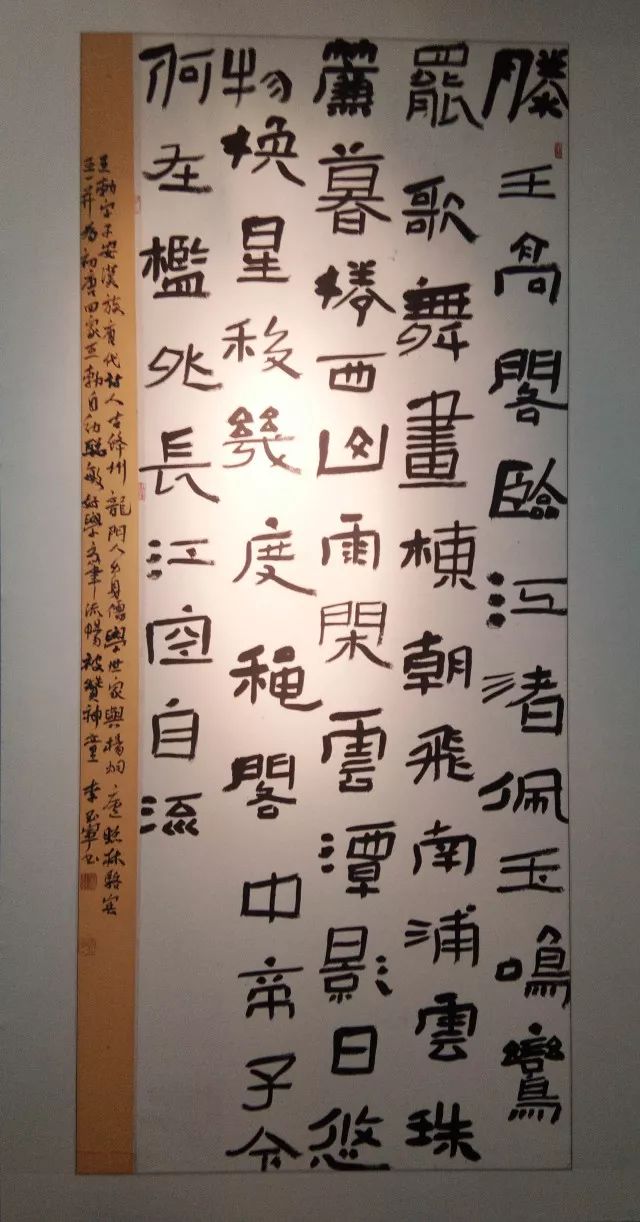 滕王高閣臨江渚佩玉鳴鸞
罷歌舞畫棟朝飛南浦雲珠
簾暮捲西山雨閑雲潭影日悠
物換星移幾度穐閣中帝子今
何在檻外長江空自流
王勃字子安漢族唐代詩人古絳州龍門人出身儒學世家與楊炯盧照鄰駱賓
王并為初唐四家王勃自幼聰敏好學文筆流暢被贊神童 李玉寧书